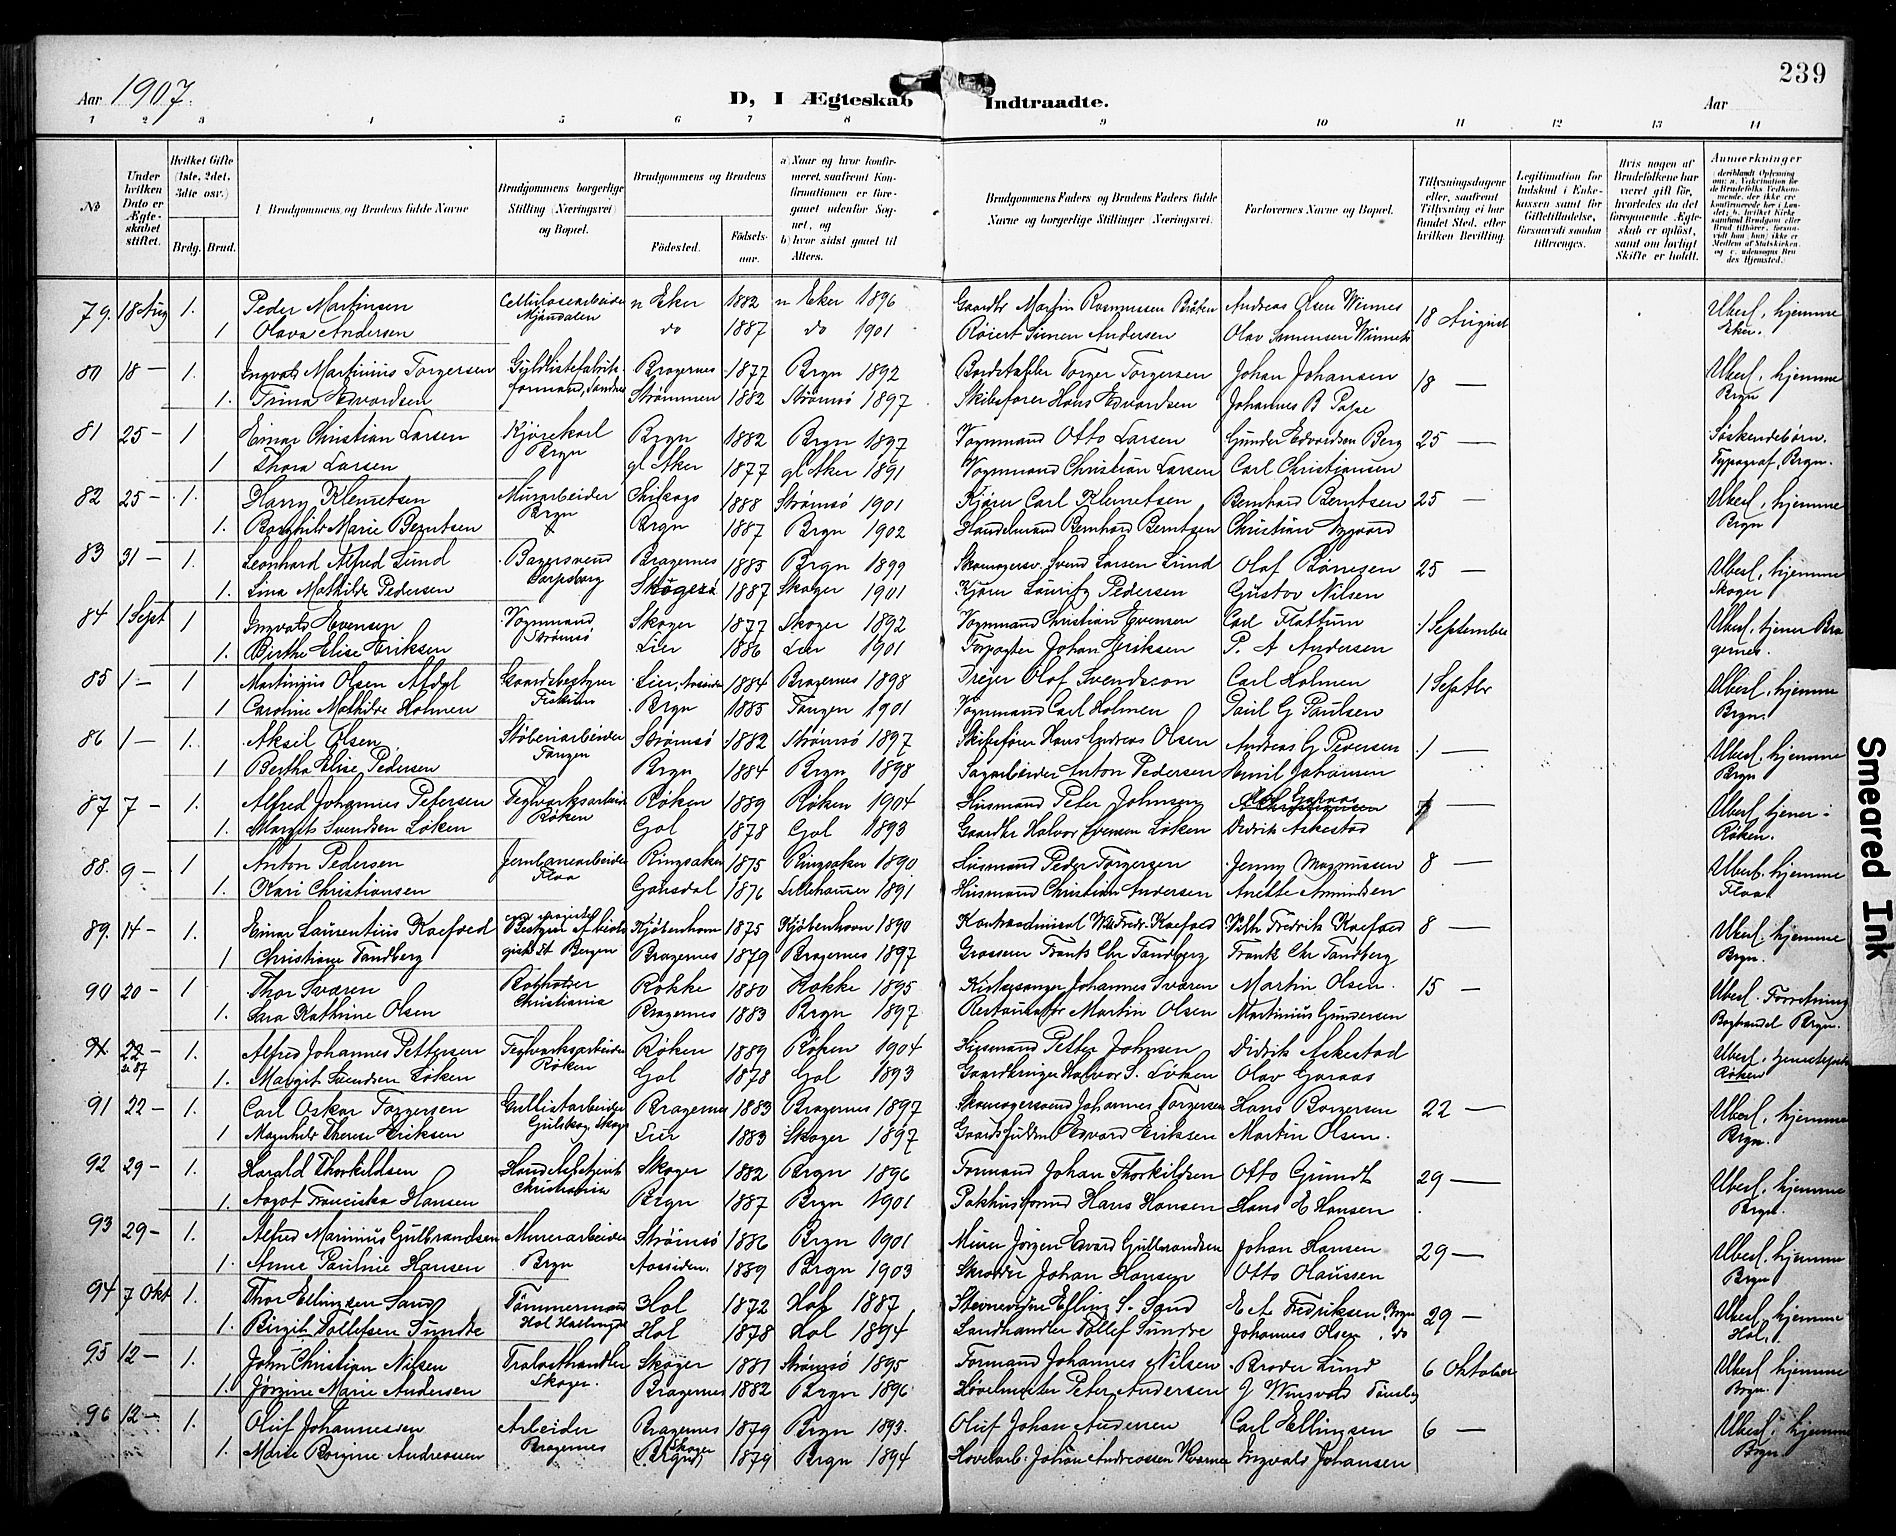 239
Aar 1907.
D, I Ægteskab Indtraadte.
Aar
1 2 3 4 5 6 7 8 9 10 11 12 13 14
№
Under hvilken Dato er Ægteskabet stiftet.
Hvilket Gifte (1ste, 2det, 3die osv.)
Brdg. Brud.
Brudgommens og Brudens fulde Navne
Brudgommens borgerlige Stilling (Næringsvei) og Bopæl.
Brudgommens og Brudens
Fødested. Fødselsaar.
a) Naar og hvor konfirmeret, saafremt Konfirmationen er foregaaet udenfor Sognet, og
b) hvor sidst gaaet til Alters.
Brudgommens Faders og Brudens Faders fulde Navne og borgerlige Stillinger (Næringsvei).
Forlovernes Navne og Bopæl.
Tillysningsdagene eller, saafremt Tillysning ei har fundet Sted, efter hvilken Bevilling.
Legitimation for Indskud i Enkekassen samt for Giftetilladelse, forsaavidt saadan tiltrænges.
Hvis nogen af Brudefolkene har været gift før, hvorledes da det foregaaende Ægteskab er opløst, samt om lovligt Skifte er holdt.
Anmerkninger
79. 18 Aug 1. Peder Martinsen Cellulosearbeider Mjøndalen n Eker 1882 n Eker 1896 Gaardbr Martin Rasmussen Andreas Olsen Winnes 18 August Uberl. hjemme Eker.
1 Olava Andersen do 1887 do 1901 Røiert Simen Andersen Olav Simensen
80 18 — 1. Ingvald Martinius Torgersen Gyldlistefabrik formand, Bragernes 1877 Brgn 1892 Bordstabler Torger Torgersen Johan Johansen 18 — Uberl. hjemme Brgn
1. Trina Edvardsen Strømmen 1882 Strømsø 1897 Skibsfører Hans Edvardsen Johannes B Pape
81 25 — 1 Einar Christian Larsen Kjørekarl Brgn Brgn 1882 Brgn 1897 Vognmand Otto Larsen Gunder Edvardsen Berg 25 — Søskendebørn.
1 Thora Larsen gl Aker 1877 gl Aker 1891 Vognmand Christian Larsen Carl Christiansen Typograf, Brgn.
82 25 — 1. Harry Klemetsen Murarbeider Brgn Chikago 1888 Strømsø 1901 Kjører Carl Klemetsen Bernhard Berntsen 25 — Uberl. hjemme Brgn
1. Borghild Marie Berntsen Brgn 1887 Brgn 1902 Handelmand Bernhard Berntsen Christian Nygaard
83 31 — 1. Leonhard Alfred Lund Bagersvend Sarpsborg Bragernes 1885 Brgn 1899 Skomagersv. Svend Larsen Lund Olaf Rønsen 25 — Uberl. hjemme Skoger
1. Lina Mathilde Pedersen 1887 Skoger 1901 Kjører Lauritz Pedersen Gustav Nilsen
84 1 Sept 1 Ingvald Evensen Vognmand Strømsø Skoger 1877 Skoger 1892 Vognmand Christian Evensen Carl Flattum 1 September Uberl. tjener Bragernes.
1. Birthe Elise Eriksen Lier 1886 Lier 1901 Forpagter Johan Eriksen P. A Andersen
85 1 — 1 Martinius Olsen Gaardsbestyrer Lier, 1884 Bragernes 1898 Dreier Olof Svendsson Carl Holmen 1 Septbr Uberl. hjemme Brgn.
1 Caroline Mathilde Holmen Brgn 1885 Tangen 1901 Vognmand Carl Holmen Paul G Paulsen
86 1 — 1. Aksel Olsen Støberiarbeider Tangen Strømsø 1882 Strømsø 1897 Skibsfører Hans Andreas Olsen Andreas G Pedersen 1 — Uberl. hjemme Brgn
1 Bertha Elise Pedersen Brgn 1884 Brgn 1898 Sagarbeider Anton Pedersen Emil Johansen
87 7 — 1. Alfred Johannes Petersen Teglverksarbeid Røken Røken 1889 Røken 1904 Husmand Peter Johnsen Olav Garaas Uberl. tjener i Røken.
1. Margit Svendsen Løken Gol 1878 Gol 1893 Gaardbr Halvor Svensen Løken Didrik Askestad
88. 9 — 1 Anton Pedersen Jernbanearbeider Flaa Ringsaker 1875 Ringsaker 1890 Husmand Peder Torgersen Jenny Magnussen 8 — Uberl. hjemme Flaa
1. Kari Christiansen Gausdal 1876 Lillehammer 1891 Husmand Christian Andersen Anette Amundsen
89. 14 — 1. Einar Laurentius Koefoed Bestyrer af biologisk St Bergen Kjøbenhavn 1875 Kjøbenhavn 1890 Kontreadmiral Wilh Fredr. Koefoed Wilh Fredrik Koefoed 8 — Uberl. hjemme Brgn.
1 Christiane Tandberg Bragernes 1879 Bragernes 1897 Grosserer Frantz Chr Tandberg Frantz Chr Tandberg
90 20 — 1 Thor Svaren Bokholder Christiania Rokke 1880 Rokke 1895 Kirkesanger Johannes Svaren Martin Olsen. 15 — Uberl. Forretning
1. Sara Kathrine Olsen Bragernes 1883 Brgn 1897 Restauratør Martin Olsen Martinius Gundersen Boghandel Brgn.
22 — se 87 1. Alfred Johannes Pettersen Teglverksarbeider Røken Røken 1889 Røken 1904 Husmand Petter Johnsen Didrik Askestad Uberl. Røken
1. Margit Svendsen Løken Gol 1878 Gol 1893 Gaardbruger Halvor S. Løken Olav Garaas
91 22 — 1. Carl Oskar Torgersen Gullistarbeider Gulskog, Skoger Bragernes 1883 Bragernes 1897 Skomagersvend Johannes Torgersen Hans Borgersen 22 — Uberl. hjemme Brgn.
1 Magnhild Therese Eriksen Lier 1883 Skoger 1897 Edvard Eriksen Martin Olsen.
92 29 — 1. Harald Thorkildsen Handelsbetjent Christiania Skoger 1882 Brgn 1896 Formand Johan Thorkildsen Otto Grundt 29 — Uberl. hjemme Brgn.
1. Aagot Franciska Hansen Brgn 1887 Brgn 1901 Pakhusformd Hans Hansen Hans E Hansen
93 29 — 1. Alfred Marinius Gulbrandsen Murerarbeider Brgn Strømsø 1886 Brgn 1901 Murer Jørgen Edvard Gulbrandsen Johan Hansen 29 — Uberl. hjemme Brgn
1. Anna Pauline Hansen Aassiden. 1889 Brgn 1903 Skrædder Johan Hansen Otto Claussen
94 7 Okt 1. Thor Ellingsen Sand Tømmermand Hol Hallingd Hol 1872 Hol 1887 Elling S. Sand E A Fredriksen, Brgn 29 — Uberl. hjemme Hol.
1. Birgit Tollefsen Sundre Hol 1878 Hol 1894 Landhandler Tollef Sundre Johannes Olsen, do
95 12 — 1. John Christian Nilsen Trælasthandler Skoger. Skoger 1881 Strømsø 1895 Formand Johannes Nilsen Broder Lund 6 Oktober Uberl. hjemme Brgn.
1. Jørgine Marie Andersen Bragernes 1882 Brgn 1896 Høvelmester Peter Andersen G Winsvold Tønsberg
96 12 — 1. Oluf Johannessen Arbeider Bragernes Bragernes 1879 Brgn 1893. Oluf Johan Andersen Carl Ellingsen 6 — Uberl. hjemme Brgn
1. Marie Borgine Andreassen Skoger (Brgn) 1879 Brgn 1894 Høvelarb. Johan Andreassen Ingvald Johansen
Smeared Ink